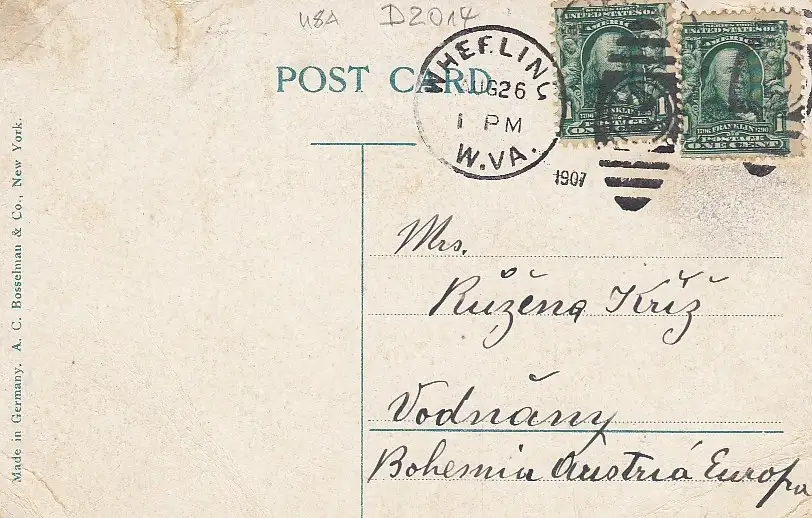 USA D2014
POST CARD
WHEELING
AUG 26
1 PM
W.VA.
1907
UNITED STATES OF
AMERICA
FRANKLIN
POSTAGE
ONE CENT
1
UNITED STATES OF
AMERICA
1706 FRANKLIN 1790
POSTAGE
ONE CENT
1
Mrs.
Růžena Kříž
Vodňány
Bohemia Austria Europa
Made in Germany. A. C. Bosselman & Co., New York.